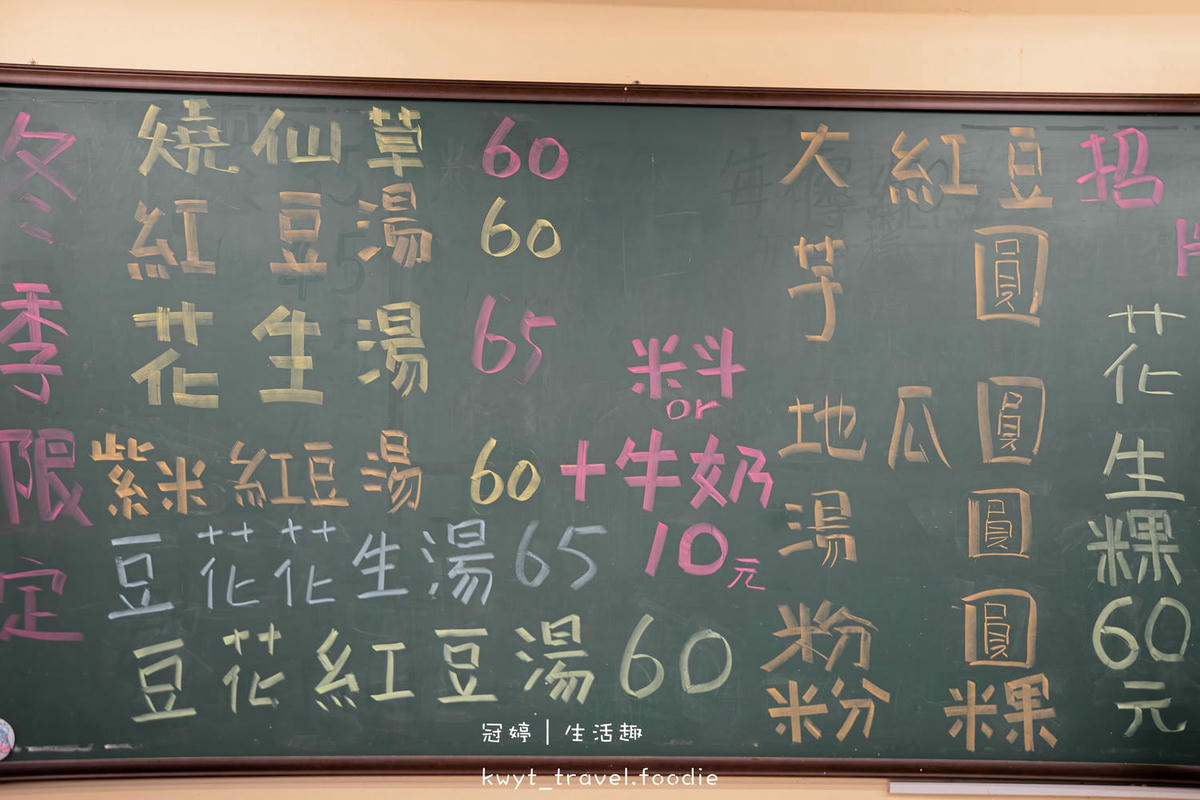 冬季限定
燒仙草 60
紅豆湯 60
花生湯 65
紫米紅豆湯 60
豆花花生湯 65
豆花紅豆湯 60
料
or
+牛奶
10元
大紅豆
芋圓
地瓜圓
湯圓
粉圓
粉粿
招
花生粿60元
冠婷|生活趣
kwyt_travel.foodie